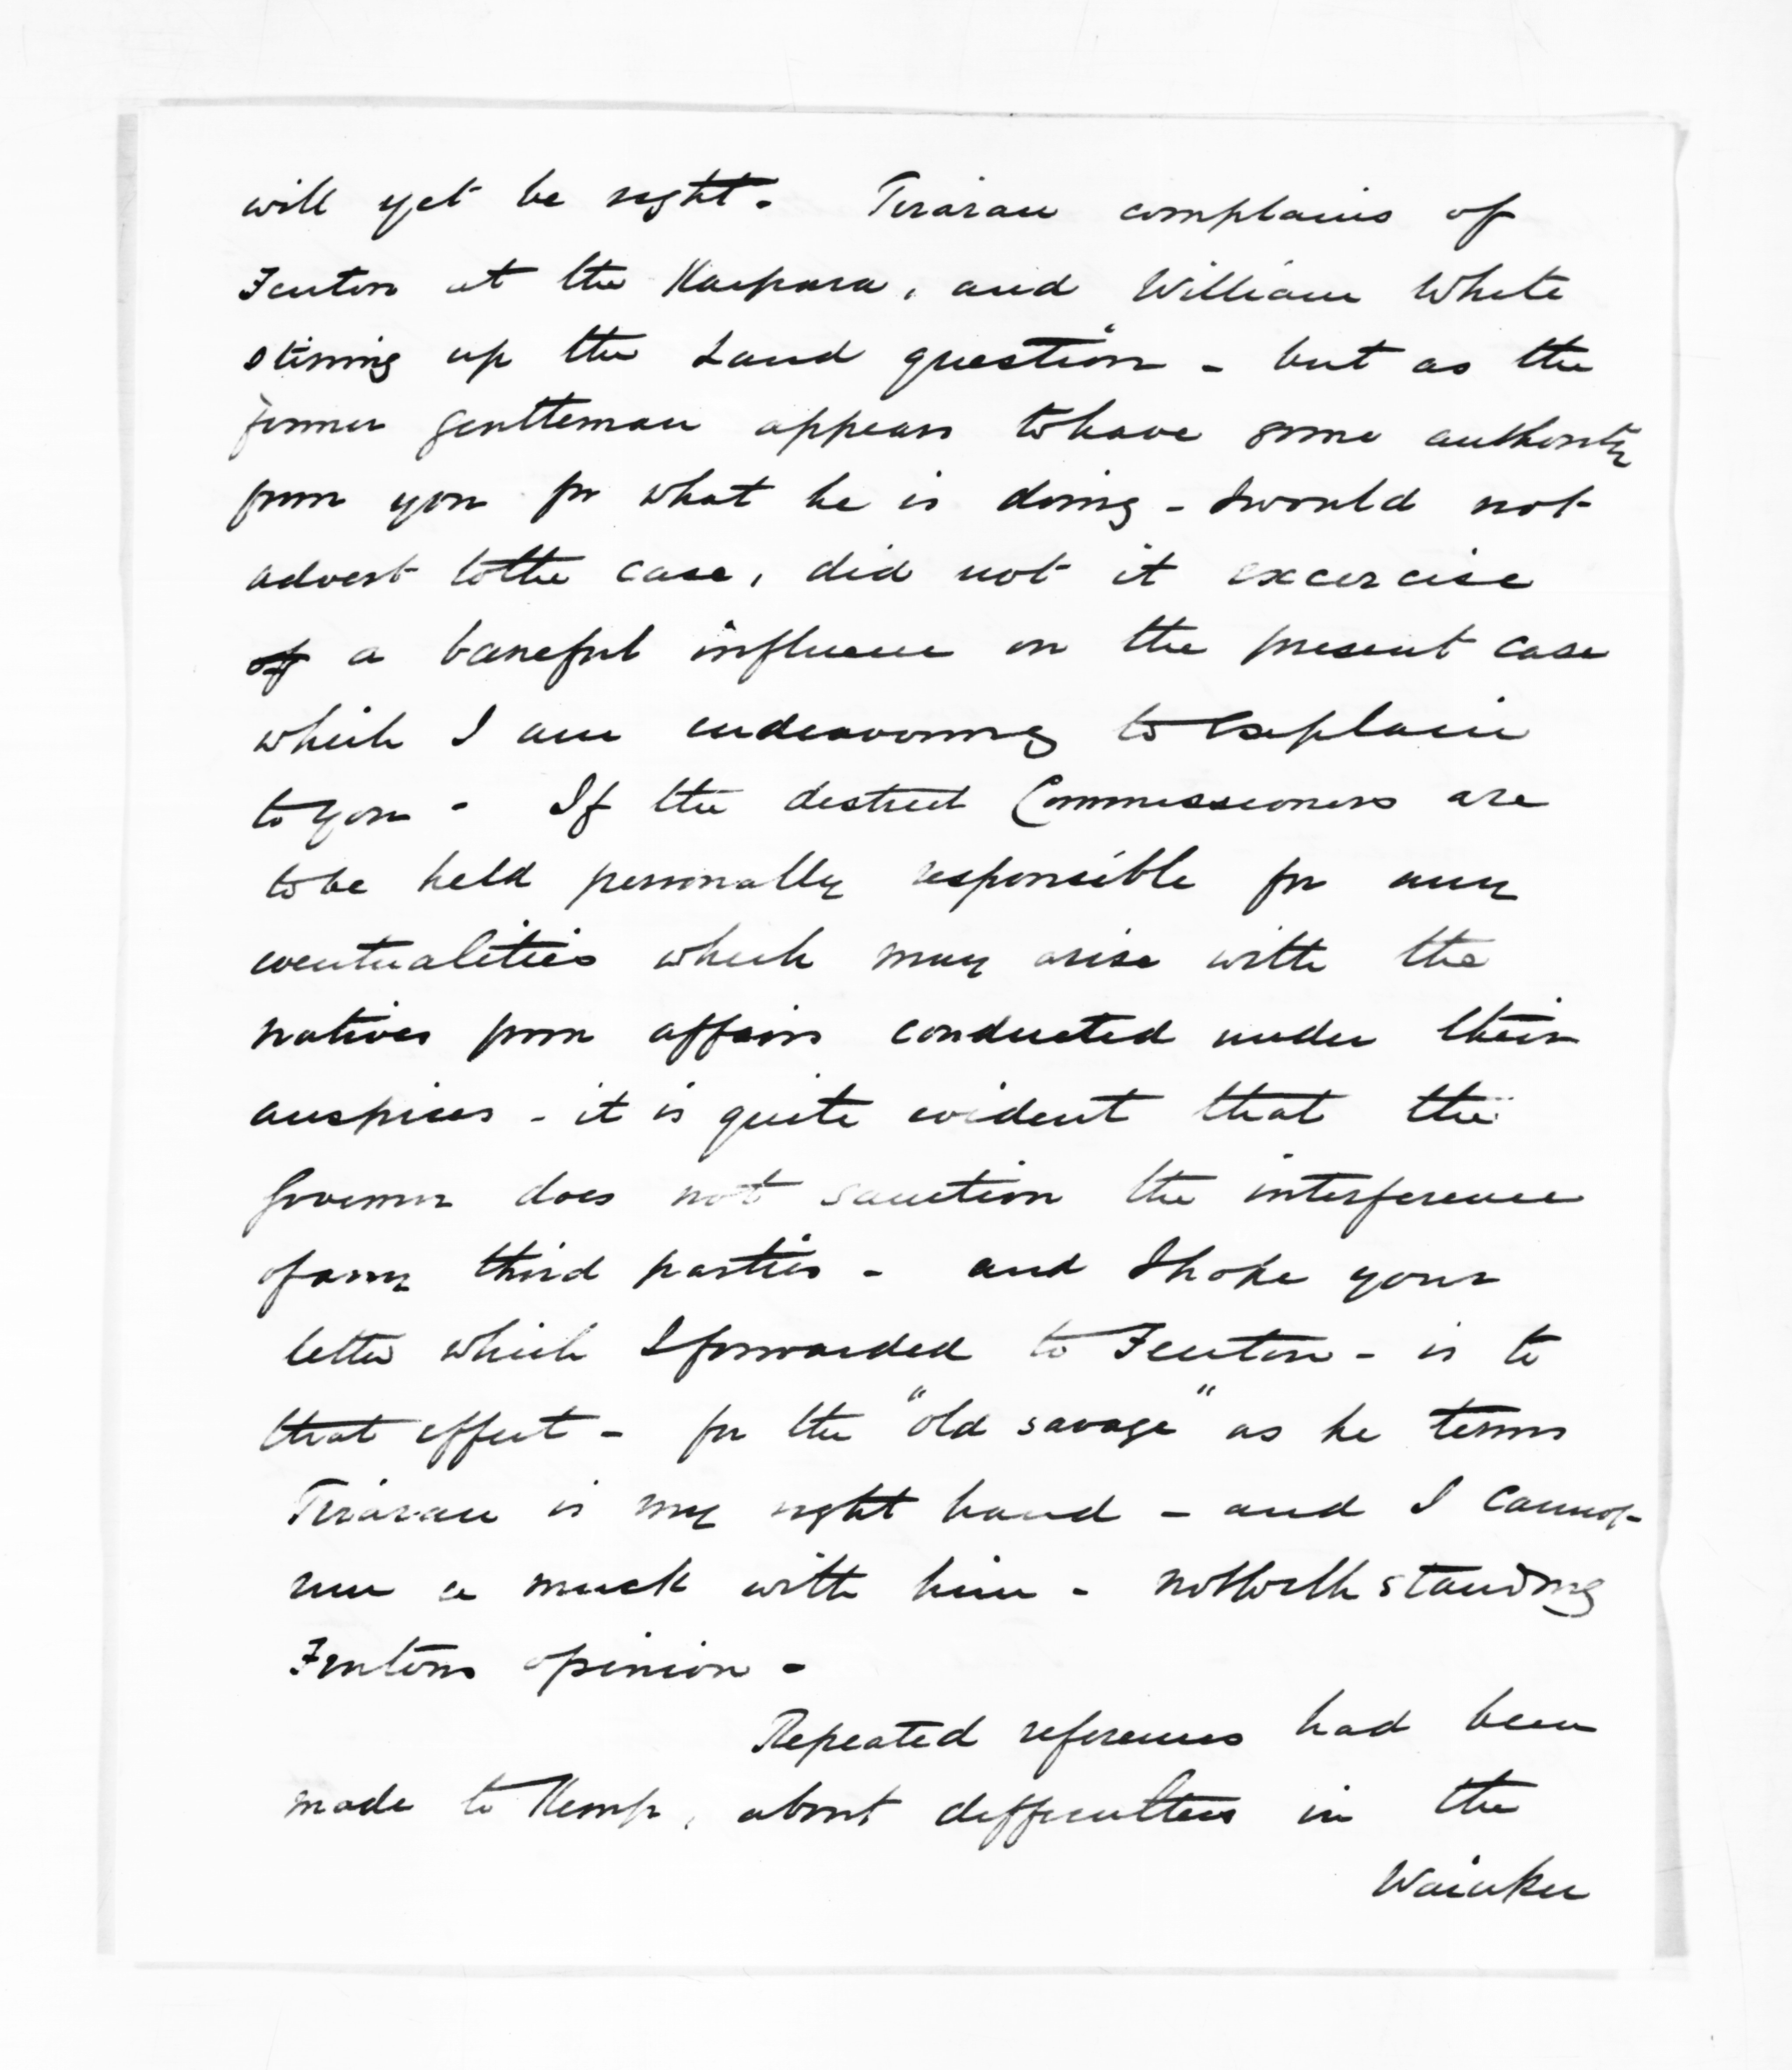 will yet be right. Tirarau complains of
Fenton at the Kaipara, and William White
stirring up the Land question - but as the
former gentleman appears to have some authority
from you for what he is doing - I would not
advert to the case, did not it excercise
of a baneful influence on the present case
which I am endeavouring to explain
to you - If the district Commissioners are
to be held personally responsible for any
eventualities which may arise with the
natives from affairs conducted under their
auspices - it is quite evident that the
Governor does not sanction the interference
of any third parties - and I hope your
letter which I forwarded to Fenton - is to
that effect - for the "old savage" as he terms
Tirarau is my right hand - and I cannot
run a muck with him - notwithstanding
Fentons opinion -
Repeated references had been
made to Kemp, about difficulties in the
Waiuku